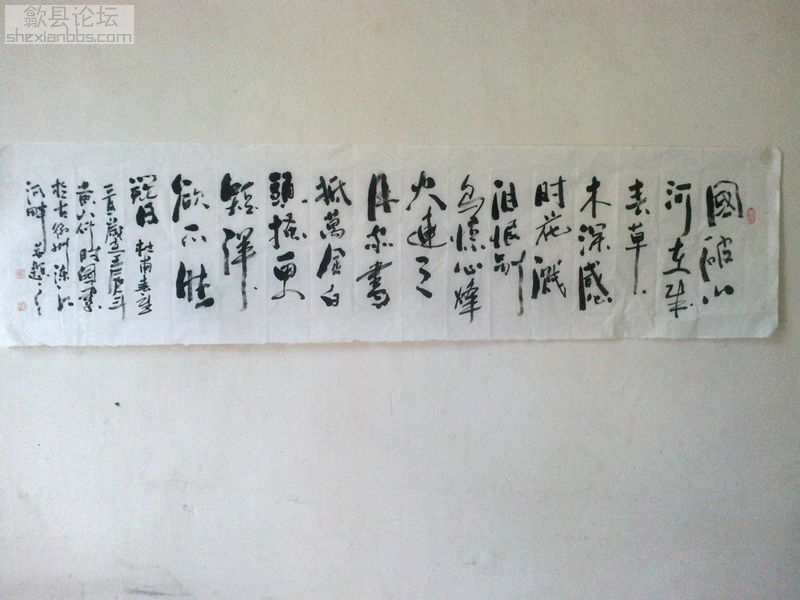 歙县论坛
shexianbbs.com
國破山
河在城
春草
木深感
时花溅
泪恨别
鸟惊心烽
火連三
月家書
抵萬金白
頭搔更
短渾
欲不勝
杜甫春
歲壬辰年
於古徽州
河畔